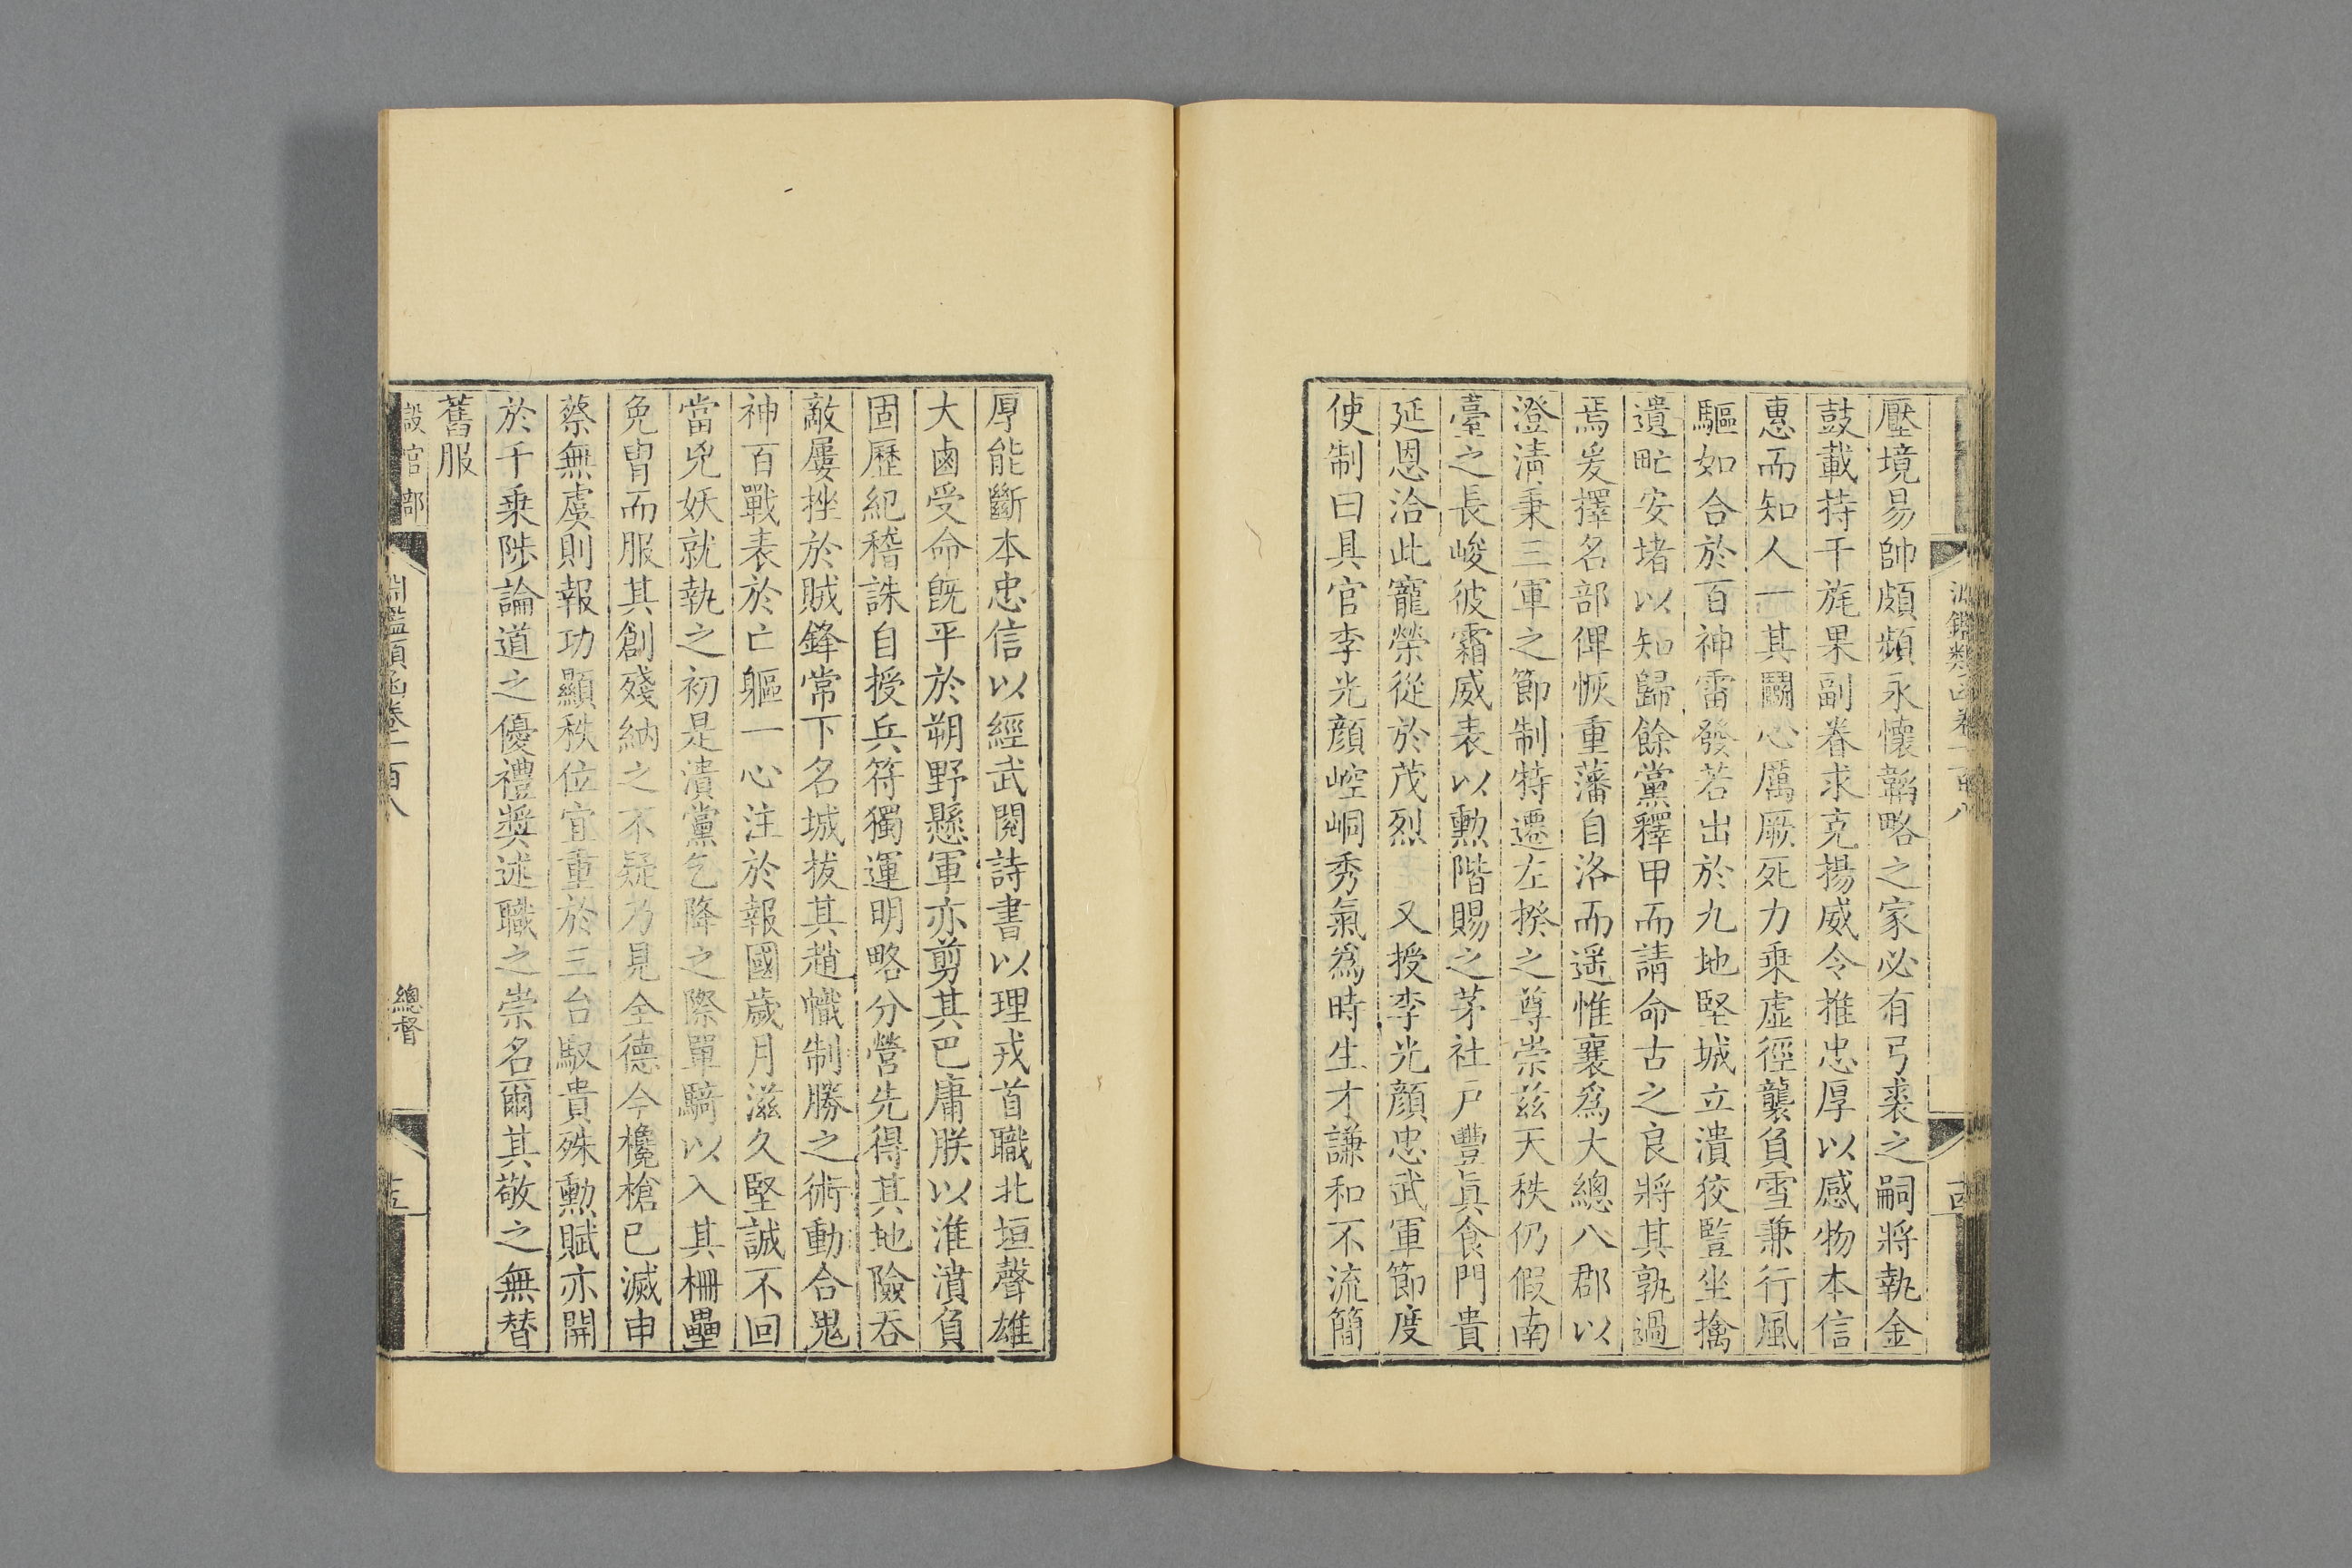 淵鑑類函卷一百八
壓境易帥頗頻永懷韜略之家必有弓裘之嗣將執金
鼓載持干旄果副眷求克揚威令推忠厚以感物本信
惠而知人一其鬬心厲厥死力乗虛徑襲負雪兼行風
驅如合於百神雷發若出於九地堅城立潰狡豎坐擒
遺甿安堵以知歸餘黨釋甲而請命古之良將其孰過
焉爰擇名部俾恢重藩自洛而遥惟襄爲大總八郡以
澄清秉三軍之節制特遷左揆之尊崇兹天秩仍假南
臺之長峻彼霜威表以勲階賜之茅社戸豐眞食門貴
延恩洽此寵榮從於茂烈 又授李光顔忠武軍節度
使制曰具官李光顔崆峒秀氣爲時生才謙和不流簡
厚能斷本忠信以經武閱詩書以理戎首職北垣聲雄
大鹵受命旣平於朔野懸軍亦剪其巴庸朕以淮濆負
固歷紀稽誅自授兵符獨運明略分營先得其地險呑
敵屢挫於賊鋒常下名城拔其趙幟制勝之術動合鬼
神百戰表於亡軀一心注於報國歲月滋久堅誠不回
當兇妖就執之初是潰黨乞降之際單騎以入其柵壘
免冑而服其創殘納之不疑乃見全德今欃槍已滅申
蔡無虞則報功顯秩位宜重於三台馭貴殊勲賦亦開
於千乗陟論道之優禮奬述職之崇名爾其敬之無替
舊服
設官部
淵鑑類函卷一百八
總督